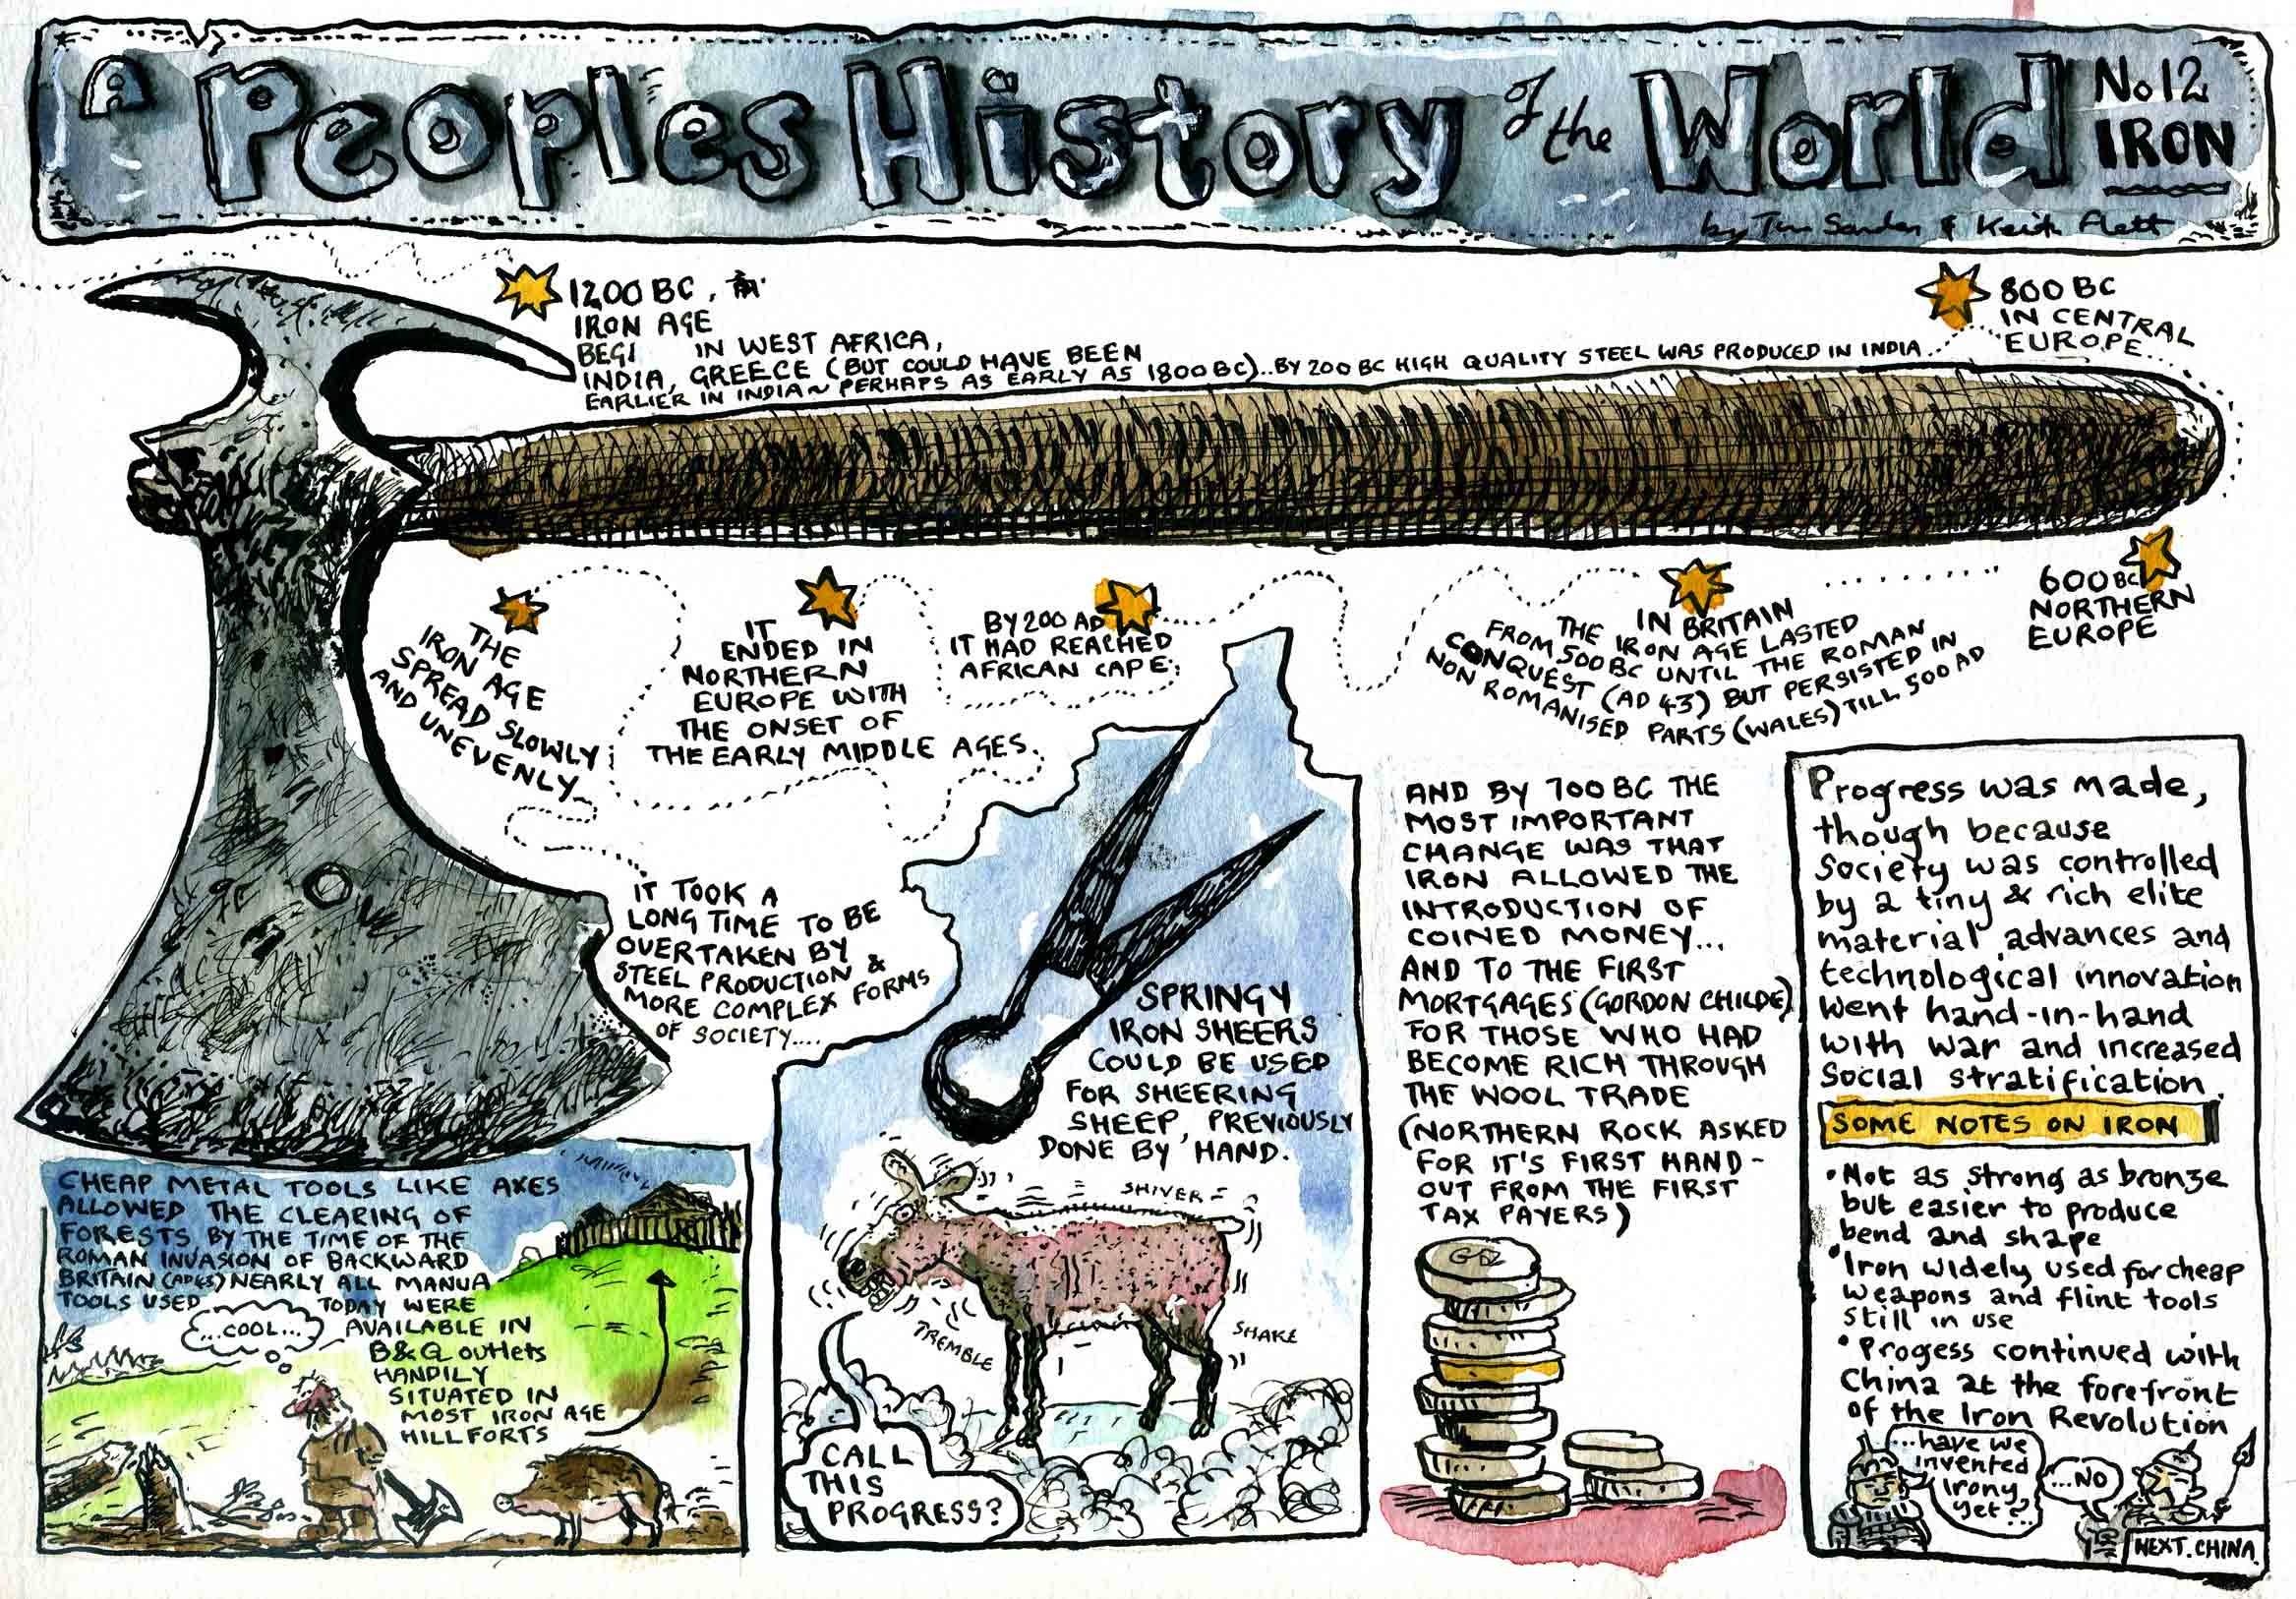 A Peoples History of the World
No.12
IRON
by Tim Sanders & Keith Flett
1200 BC,
IRON AGE
BEGI IN WEST AFRICA,
INDIA, GREECE (BUT COULD HAVE BEEN
EARLIER IN INDIA ~ PERHAPS AS EARLY AS 1800 BC)..BY 200 BC HIGH QUALITY STEEL WAS PRODUCED IN INDIA..
800 BC
IN CENTRAL
EUROPE...
600 BC
NORTHERN
EUROPE
IN BRITAIN
THE IRON AGE LASTED
FROM 500 BC UNTIL THE ROMAN
CONQUEST (AD 43) BUT PERSISTED IN
NON ROMANISED PARTS (WALES) TILL 500 AD
BY 200 AD
IT HAD REACHED
AFRICAN CAPE;
IT
ENDED IN
NORTHERN
EUROPE WITH
THE ONSET OF
THE EARLY MIDDLE AGES.
THE
IRON AGE
SPREAD SLOWLY
AND UNEVENLY...
IT TOOK A
LONG TIME TO BE
OVERTAKEN BY
STEEL PRODUCTION &
MORE COMPLEX FORMS
OF SOCIETY....
CHEAP METAL TOOLS LIKE AXES
ALLOWED THE CLEARING OF
FORESTS BY THE TIME OF THE
ROMAN INVASION OF BACKWARD
BRITAIN (AD43) NEARLY ALL MANUA
TOOLS USED
TODAY WERE
AVAILABLE IN
B&Q outlets
HANDILY
SITUATED IN
MOST IRON AGE
HILLFORTS
...COOL...
SPRINGY
IRON SHEERS
COULD BE USED
FOR SHEERING
SHEEP, PREVIOUSLY
DONE BY HAND.
SHIVER
TREMBLE
SHAKE
CALL
THIS
PROGRESS?
AND BY 700 BC THE
MOST IMPORTANT
CHANGE WAS THAT
IRON ALLOWED THE
INTRODUCTION OF
COINED MONEY...
AND TO THE FIRST
MORTGAGES (GORDON CHILDE)
FOR THOSE WHO HAD
BECOME RICH THROUGH
THE WOOL TRADE
(NORTHERN ROCK ASKED
FOR IT'S FIRST HAND-
OUT FROM THE FIRST
TAX PAYERS)
Progress was made,
though because
Society was controlled
by a tiny & rich elite
material advances and
technological innovation
went hand-in-hand
with war and increased
social stratification.
SOME NOTES ON IRON
• Not as strong as bronze
but easier to produce
bend and shape
• Iron widely used for cheap
weapons and flint tools
still in use
• Progess continued with
China at the forefront
of the Iron Revolution
...have we
invented
irony
yet?...
...NO
NEXT. CHINA.